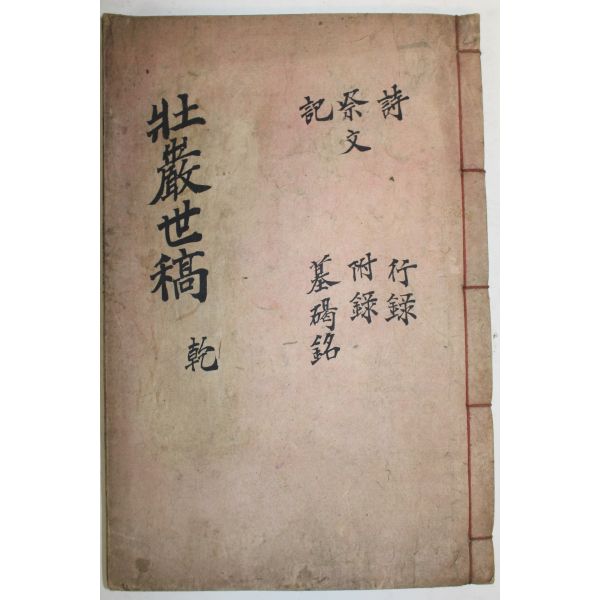 詩
祭文
記
行錄
附錄
墓碣銘
壯巖世稿
乾